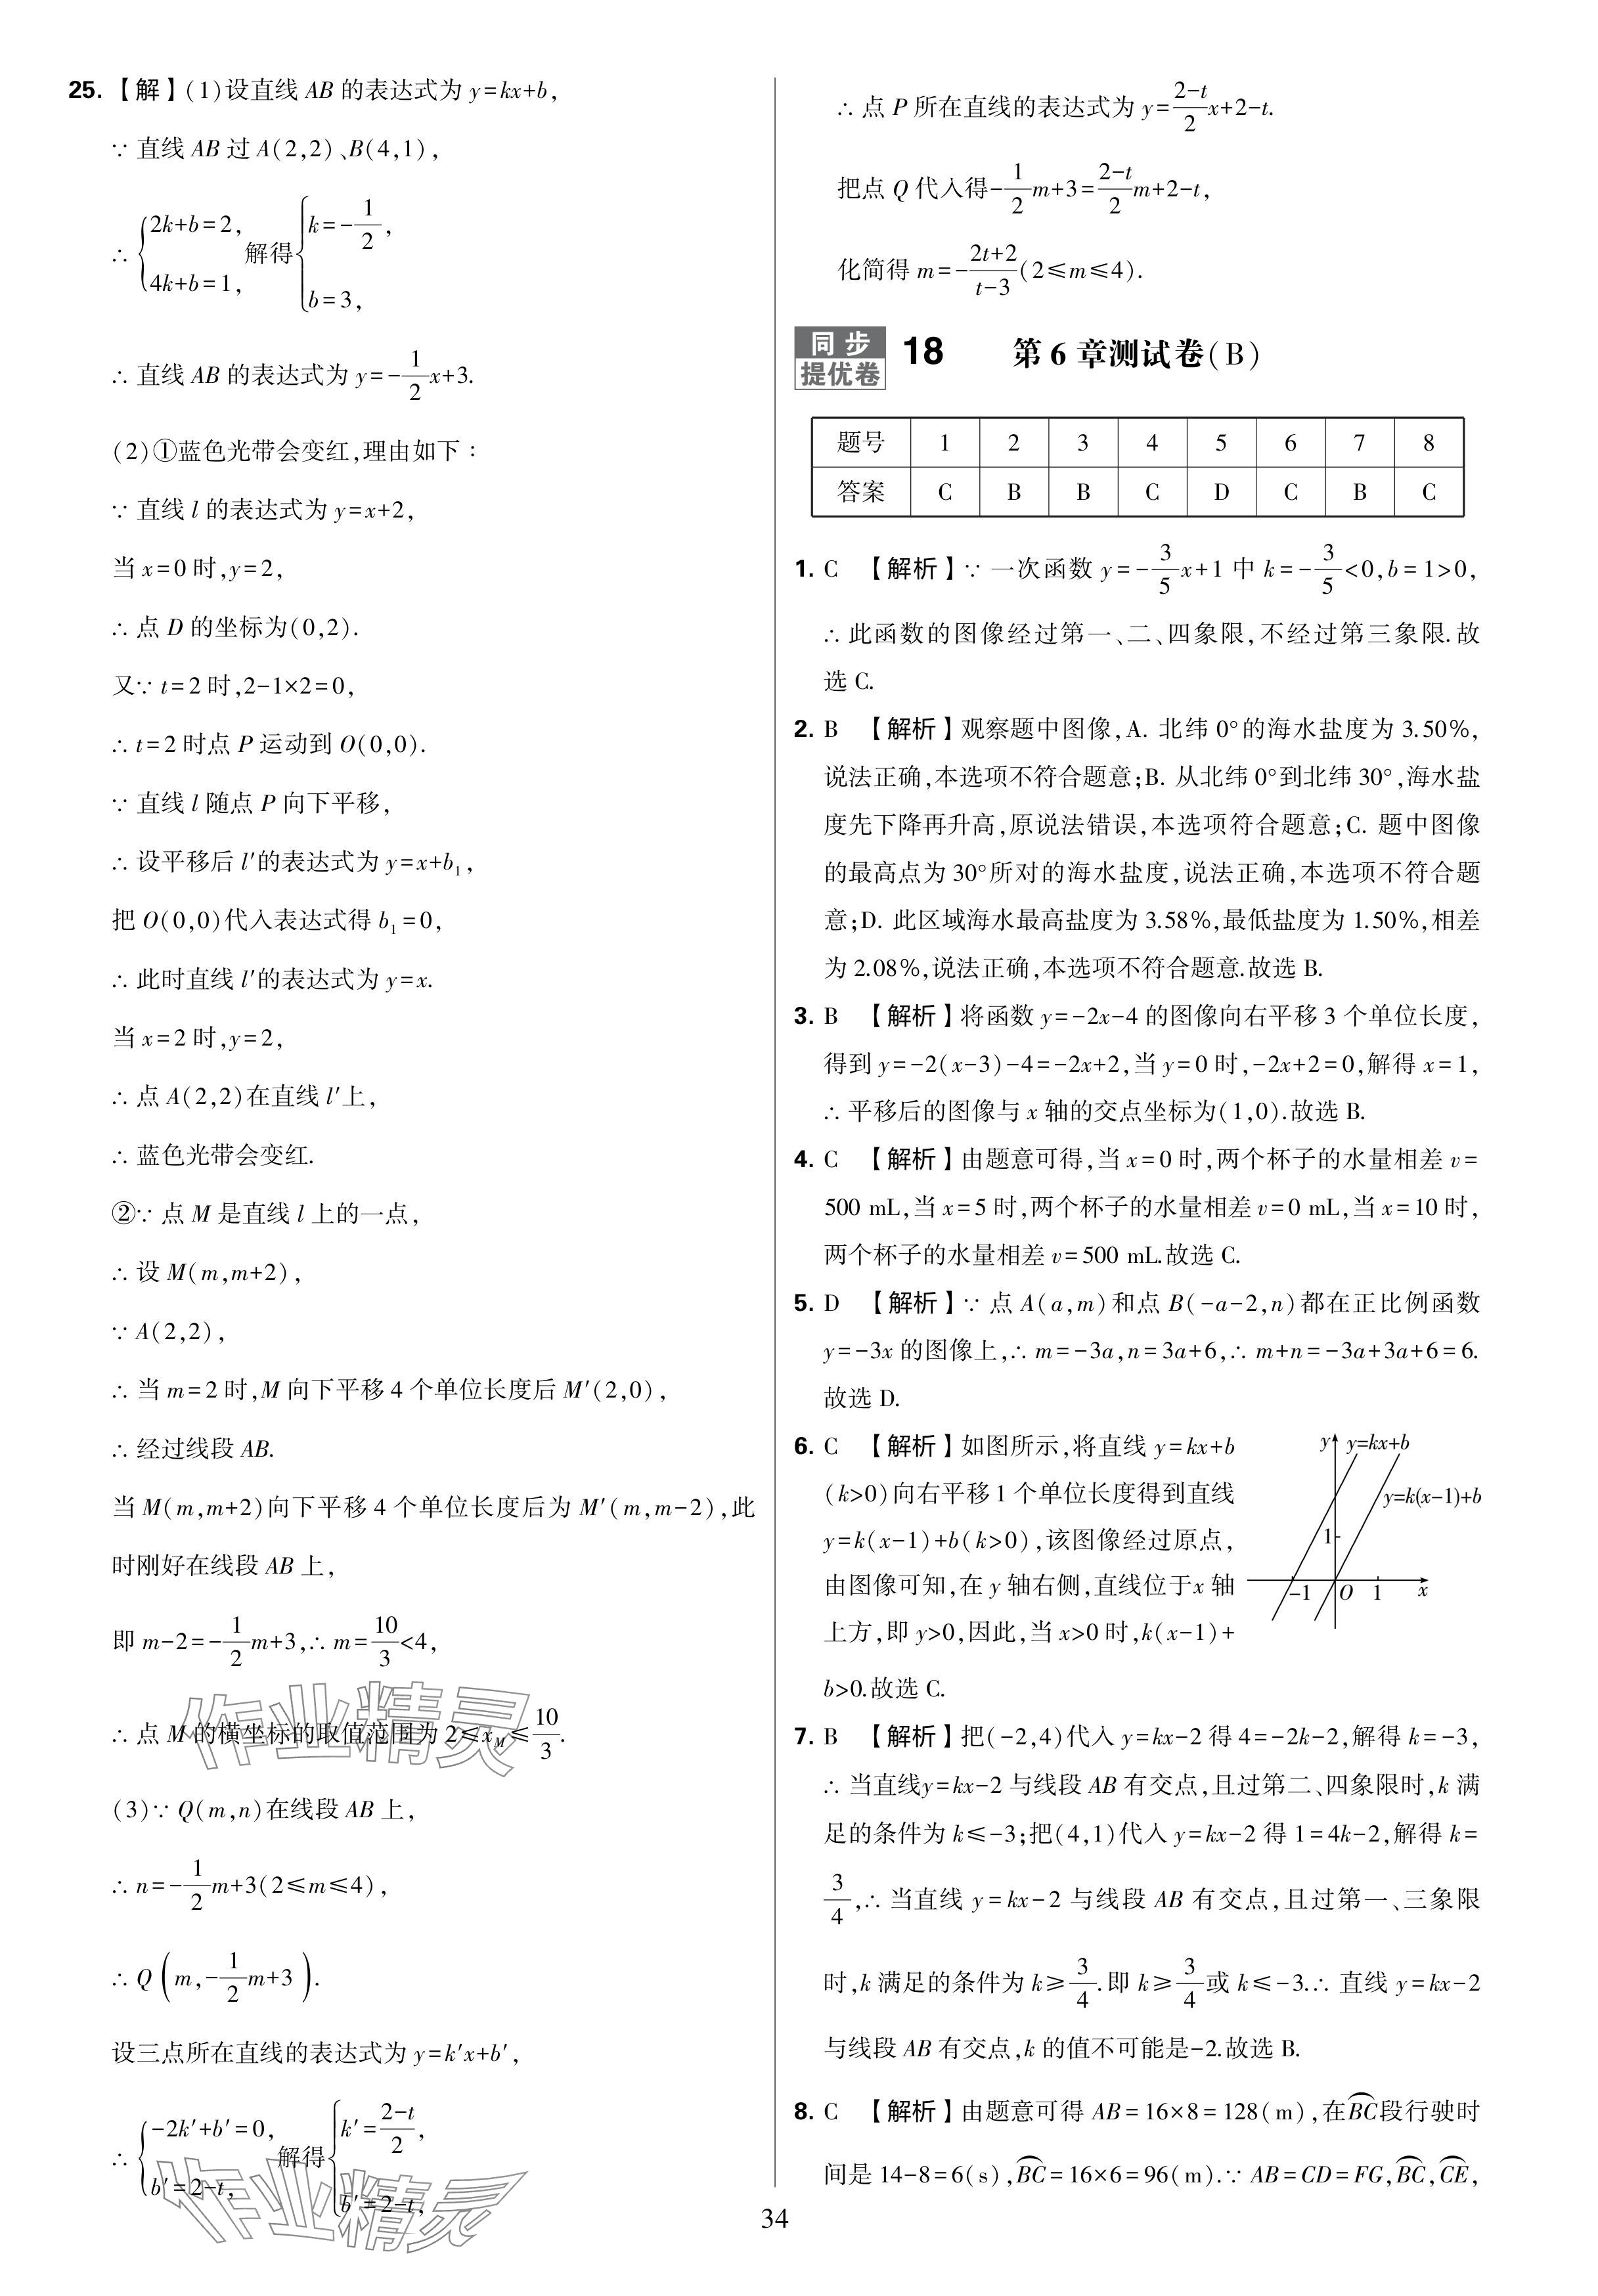 25. 【解】(1)设直线 AB 的表达式为 y=kx+b,
∵ 直线 AB 过 A(2,2)、B(4,1),
∴ {2k+b=2, 4k+b=1, 解得 {k=-1/2, b=3,
∴ 直线 AB 的表达式为 y=-1/2x+3.
(2)①蓝色光带会变红,理由如下:
∵ 直线 l 的表达式为 y=x+2,
当 x=0 时,y=2,
∴ 点 D 的坐标为(0,2).
又∵ t=2 时,2-1×2=0,
∴ t=2 时点 P 运动到 O(0,0).
∵ 直线 l 随点 P 向下平移,
∴ 设平移后 l′的表达式为 y=x+b₁,
把 O(0,0)代入表达式得 b₁=0,
∴ 此时直线 l′的表达式为 y=x.
当 x=2 时,y=2,
∴ 点 A(2,2)在直线 l′上,
∴ 蓝色光带会变红.
②∵ 点 M 是直线 l 上的一点,
∴ 设 M(m,m+2),
∵ A(2,2),
∴ 当 m=2 时,M 向下平移 4 个单位长度后 M′(2,0),
∴ 经过线段 AB.
当 M(m,m+2)向下平移 4 个单位长度后为 M′(m,m-2),此
时刚好在线段 AB 上,
即 m-2=-1/2m+3,∴ m=10/3<4,
∴ 点 M 的横坐标的取值范围为 2≤x_M≤10/3.
作业精灵
(3)∵ Q(m,n)在线段 AB 上,
∴ n=-1/2m+3(2≤m≤4),
∴ Q(m,-1/2m+3).
设三点所在直线的表达式为 y=k′x+b′,
∴ {-2k′+b′=0, b′=2-t, 解得 {k′=(2-t)/2, b′=2-t,
作业精灵
∴ 点 P 所在直线的表达式为 y=(2-t)/2x+2-t.
把点 Q 代入得-1/2m+3=(2-t)/2m+2-t,
化简得 m=-(2t+2)/(t-3)(2≤m≤4).
同步提优卷 18 第 6 章测试卷(B)
题号 1 2 3 4 5 6 7 8
答案 C B B C D C B C
1. C 【解析】∵ 一次函数 y=-3/5x+1 中 k=-3/5<0,b=1>0,
∴ 此函数的图像经过第一、二、四象限,不经过第三象限.故
选 C.
2. B 【解析】观察题中图像,A. 北纬 0°的海水盐度为 3.50%,
说法正确,本选项不符合题意;B. 从北纬 0°到北纬 30°,海水盐
度先下降再升高,原说法错误,本选项符合题意;C. 题中图像
的最高点为 30°所对的海水盐度,说法正确,本选项不符合题
意;D. 此区域海水最高盐度为 3.58%,最低盐度为 1.50%,相差
为 2.08%,说法正确,本选项不符合题意.故选 B.
3. B 【解析】将函数 y=-2x-4 的图像向右平移 3 个单位长度,
得到 y=-2(x-3)-4=-2x+2,当 y=0 时,-2x+2=0,解得 x=1,
∴ 平移后的图像与 x 轴的交点坐标为(1,0).故选 B.
4. C 【解析】由题意可得,当 x=0 时,两个杯子的水量相差 v=
500 mL,当 x=5 时,两个杯子的水量相差 v=0 mL,当 x=10 时,
两个杯子的水量相差 v=500 mL.故选 C.
5. D 【解析】∵ 点 A(a,m)和点 B(-a-2,n)都在正比例函数
y=-3x 的图像上,∴ m=-3a,n=3a+6,∴ m+n=-3a+3a+6=6.
故选 D.
6. C 【解析】如图所示,将直线 y=kx+b
(k>0)向右平移 1 个单位长度得到直线
y=k(x-1)+b(k>0),该图像经过原点,
由图像可知,在 y 轴右侧,直线位于x 轴
上方,即 y>0,因此,当 x>0 时,k(x-1)+
b>0.故选 C.
y y=kx+b
y=k(x-1)+b
1
-1 O 1 x
7. B 【解析】把(-2,4)代入 y=kx-2 得 4=-2k-2,解得 k=-3,
∴ 当直线y=kx-2 与线段 AB 有交点,且过第二、四象限时,k 满
足的条件为 k≤-3;把(4,1)代入 y=kx-2 得 1=4k-2,解得 k=
3/4,∴ 当直线 y=kx-2 与线段 AB 有交点,且过第一、三象限
时,k 满足的条件为 k≥3/4.即 k≥3/4或 k≤-3.∴ 直线 y=kx-2
与线段 AB 有交点,k 的值不可能是-2.故选 B.
8. C 【解析】由题意可得 AB=16×8=128(m),在⌒BC段行驶时
间是 14-8=6(s),⌒BC=16×6=96(m).∵ AB=CD=FG,⌒BC,⌒CE,
34